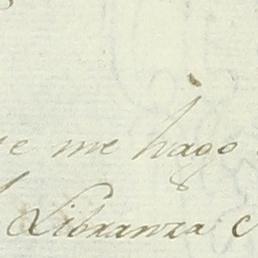 me hago
Libranza